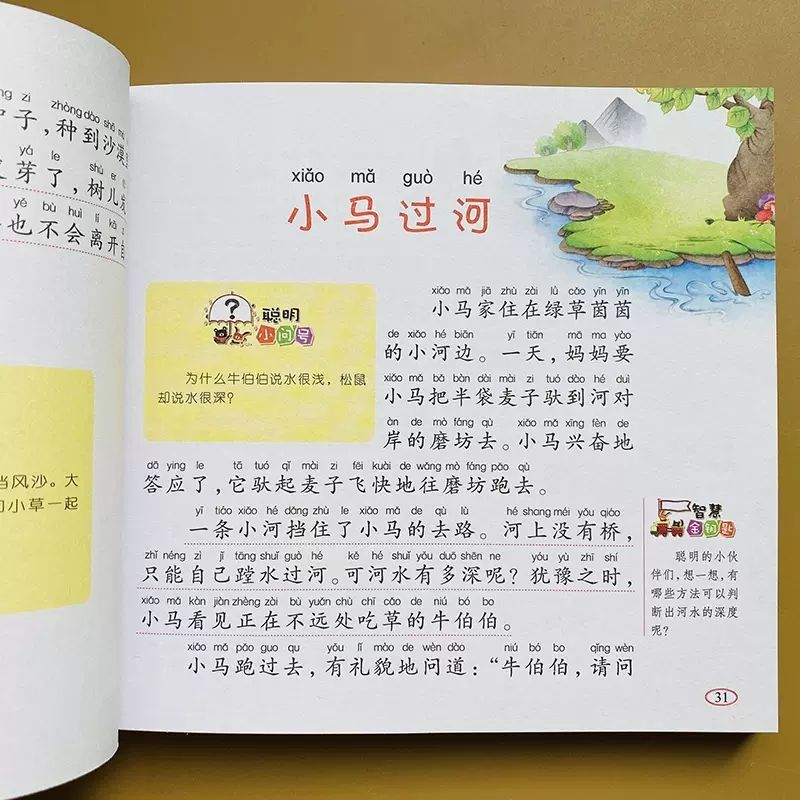 zǐ zhòng dào shā
子，种到沙漠
yá le shù ér
芽了，树儿
yě bù huì lí kāi
也不会离开
当风沙。大
小草一起
xiǎo mǎ guò hé
小马过河
聪明
小问号
为什么牛伯伯说水很浅，松鼠
却说水很深？
xiǎo mǎ jiā zhù zài lǜ cǎo yīn yīn
小马家住在绿草茵茵
de xiǎo hé biān yī tiān mā ma yào
的小河边。一天，妈妈要
xiǎo mǎ bǎ bàn dài mài zi tuó dào hé duì
小马把半袋麦子驮到河对
àn de mò fáng qù xiǎo mǎ xīng fèn de
岸的磨坊去。小马兴奋地
dā ying le tā tuó qǐ mài zi fēi kuài de wǎng mò fáng pǎo qù
答应了，它驮起麦子飞快地往磨坊跑去。
yī tiáo xiǎo hé dǎng zhù le xiǎo mǎ de qù lù hé shang méi yǒu qiáo
一条小河挡住了小马的去路。河上没有桥，
zhǐ néng zì jǐ tāng shuǐ guò hé kě hé shuǐ yǒu duō shēn ne yóu yù zhī shí
只能自己蹚水过河。可河水有多深呢？犹豫之时，
xiǎo mǎ kàn jiàn zhèng zài bù yuǎn chù chī cǎo de niú bó bo
小马看见正在不远处吃草的牛伯伯。
xiǎo mǎ pǎo guo qu yǒu lǐ mào de wèn dào niú bó bo qǐng wèn
小马跑过去，有礼貌地问道：“牛伯伯，请问
智慧
金钥匙
聪明的小伙
伴们，想一想，有
哪些方法可以判
断出河水的深度
呢？
31